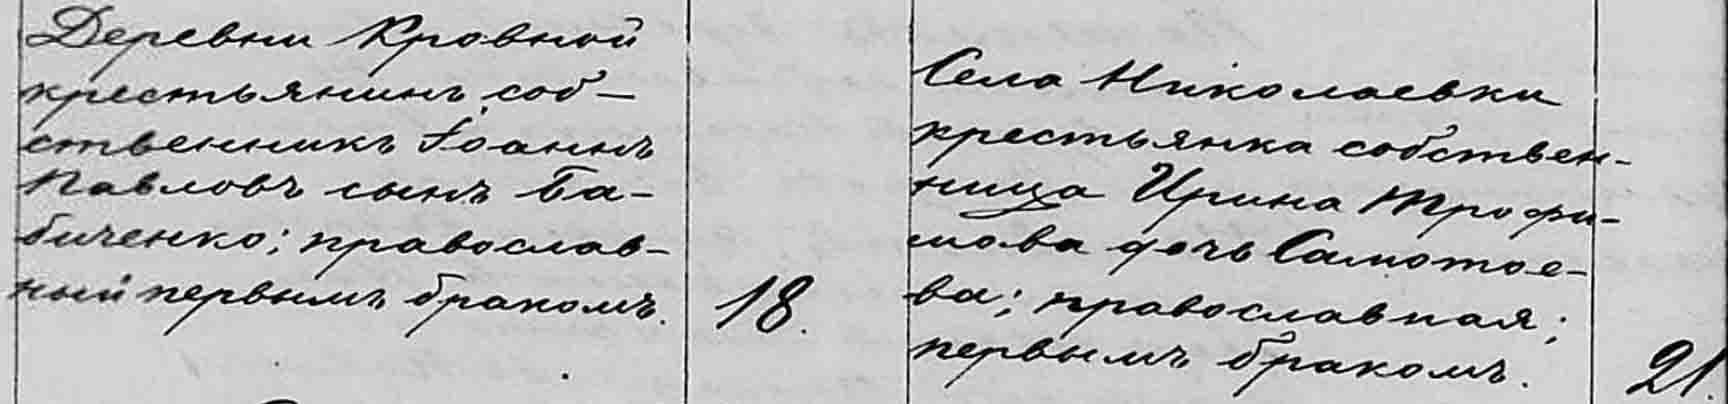 Деревни Кровной
крестьянинъ соб-
ственникъ Іоаннъ
Павловъ сынъ Ба-
биченко; православ-
ный первымъ бракомъ.
18.
Села Николаевки
крестьянка собствен-
ница Ирина Трофи-
мова дочь Самотое-
ва; православная;
первымъ бракомъ.
21.